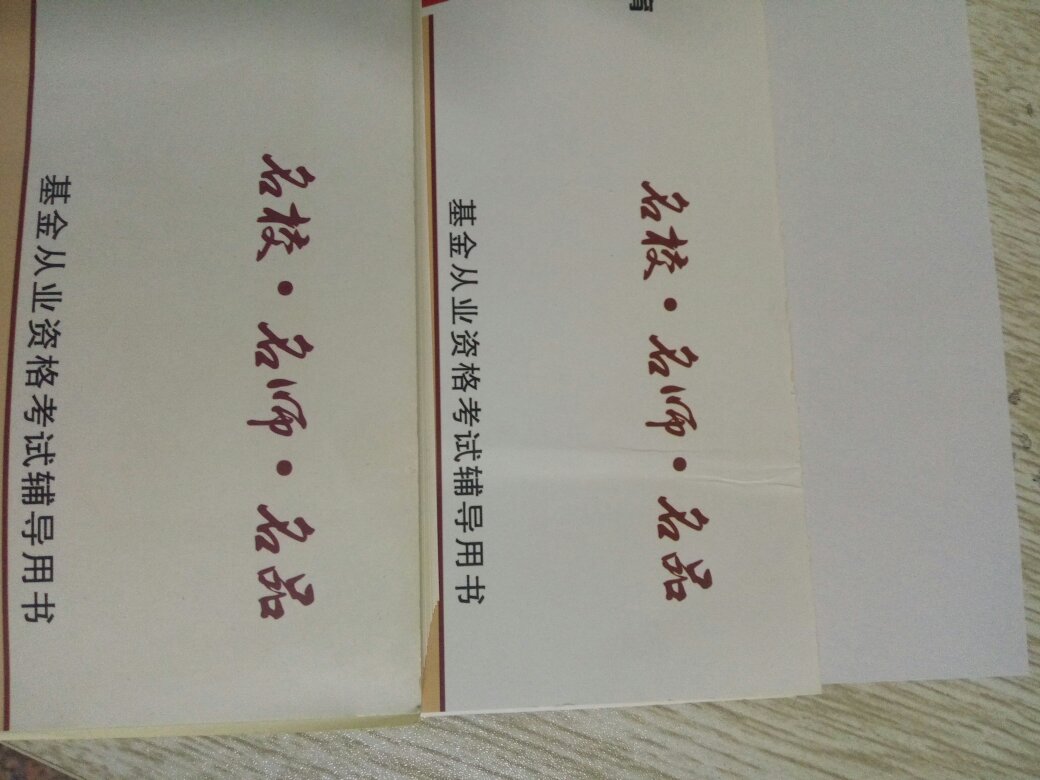 名校·名师·名品
基金从业资格考试辅导用书
育
名校·名师·名品
基金从业资格考试辅导用书